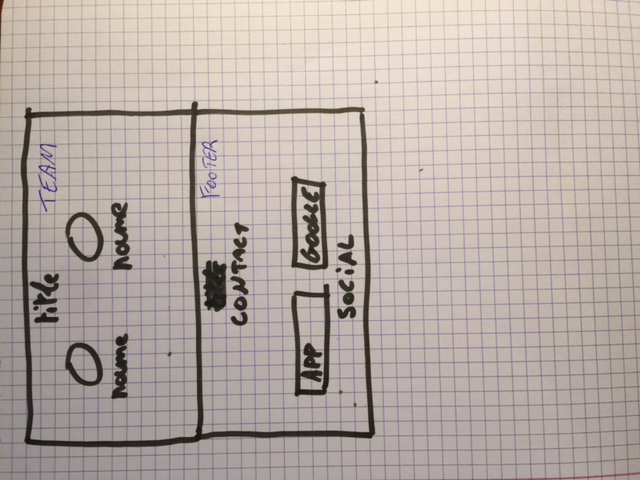 title TEAM
name name
FOOTER
CONTACT
APP GOOGLE
SOCIAL